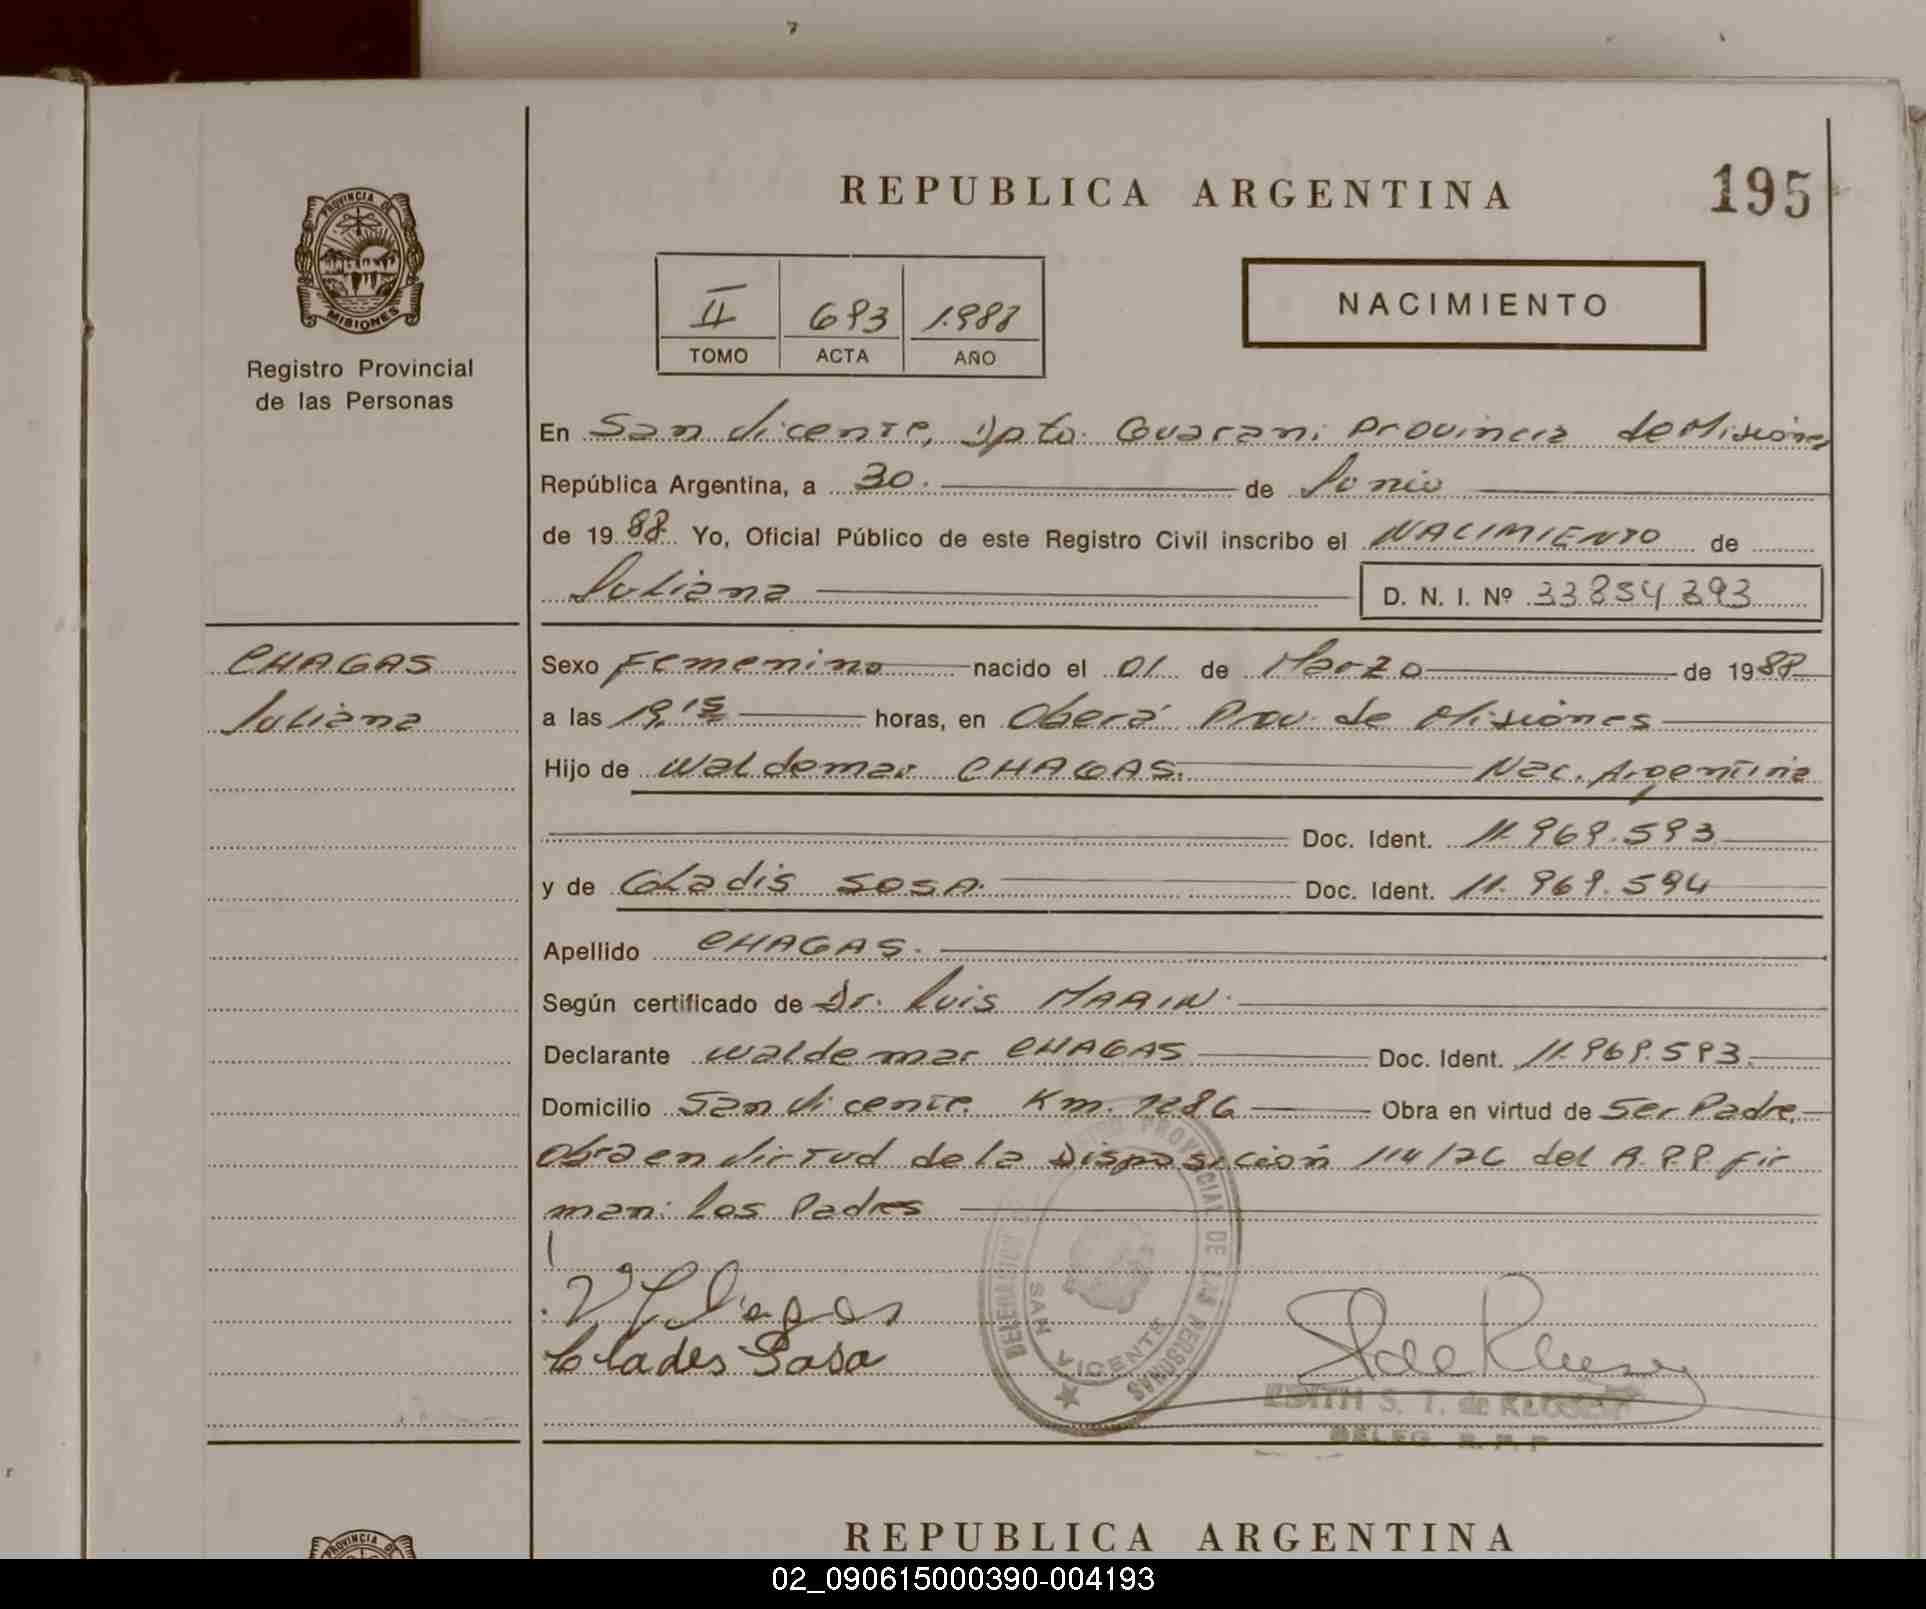 195
REPUBLICA ARGENTINA
PROVINCIA DE
MISIONES
Registro Provincial
de las Personas
II 693 1.988
TOMO ACTA AÑO
NACIMIENTO
En San Vicente, Dpto. Guarani Provincia de Misiones
República Argentina, a 30. de Junio
de 1988. Yo, Oficial Público de este Registro Civil inscribo el NACIMIENTO de
Juliana D. N. I. Nº 33854393
CHAGAS
Juliana
Sexo Femenino nacido el 01. de Marzo de 1988
a las 19,15 horas, en Oberá Prov. de Misiones
Hijo de Waldemar CHAGAS. Nac. Argentina
Doc. Ident. 11.969.593
y de Gladis SOSA. Doc. Ident. 11.969.594
Apellido CHAGAS.
Según certificado de Dr. Luis MARIN.
Declarante Waldemar CHAGAS Doc. Ident. 11.969.593.
Domicilio San Vicente. Km. 1286 Obra en virtud de Ser Padre,
Obra en Virtud de la Disposición 114/76 del R.P.P. fir
man: los Padres
Clades Sosa
DELEGACION PROVINCIAL DE LAS PERSONAS
SAN VICENTE
EDITH S. T. de KLUSEN
DELEG. R. P. P
PROVINCIA DE
REPUBLICA ARGENTINA
02_090615000390-004193